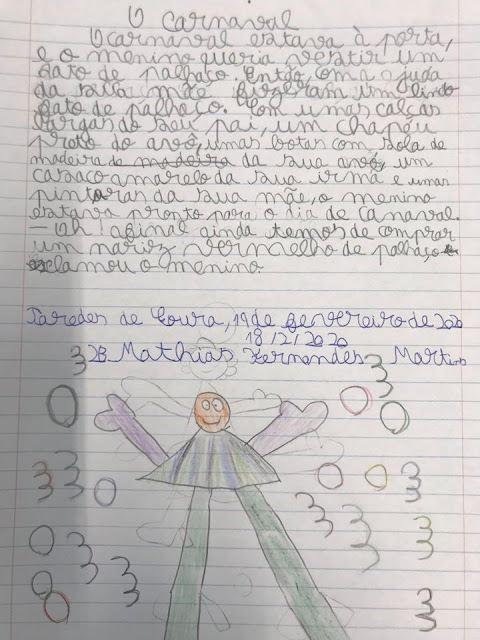 O Carnaval
O carnaval estava à porta,
e o menino queria vestir um
fato de palhaço. Então com a ajuda
da sua mãe fizeram um lindo
fato de palhaço. Com umas calças
largas do seu pai, um chapéu
preto do avô, umas botas com sola de
madeira da sua avó, um
casaco amarelo da sua irmã e umas
pinturas da sua mãe, o menino
estava pronto para o dia de canaval.
— Oh! Afinal ainda temos de comprar
um nariz vermelho de palhaço
clamou o menino
Paredes de Coura, 19 de fevereiro de 2020
18/2/2020
2B Mathias Fernandes Martins